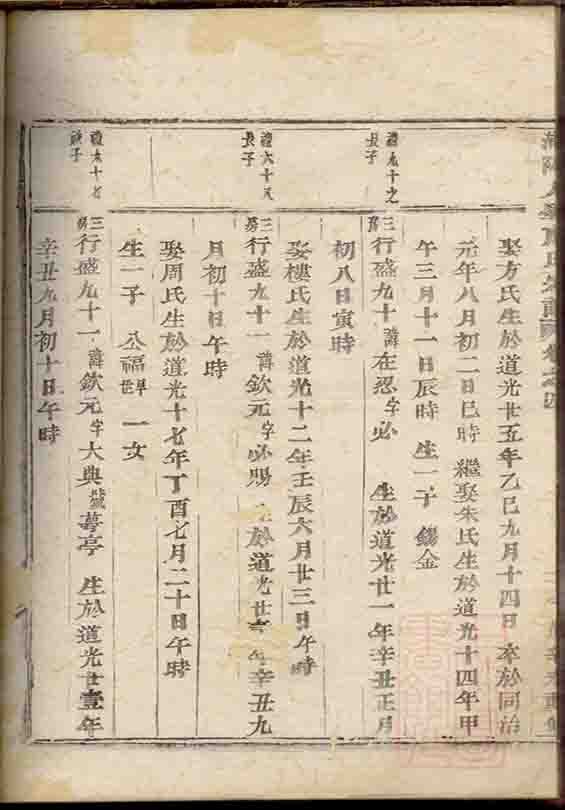 娶方氏生於道光廿五年乙巳九月十四日 卒於同治
元年八月初二日巳時 繼娶朱氏生於道光十四年甲
午三月十一日辰時 生一子 錫金
長子
三房行盛九十 諱在忍 字必 生於道光廿一年辛丑正月
初八日寅時
娶樓氏生於道光十二年壬辰六月廿三日午時
禮六十八
長子
三房行盛九十一 諱欽元 字必賜 於道光廿年辛丑九
月初十日午時
娶周氏生於道光十七年丁酉七月二十日午時
生一子 公福早世 一女
禮六十七
子
三房行盛九十一 諱欽元 字大典 號蓴亭 生於道光廿壹年
辛丑九月初十日午時